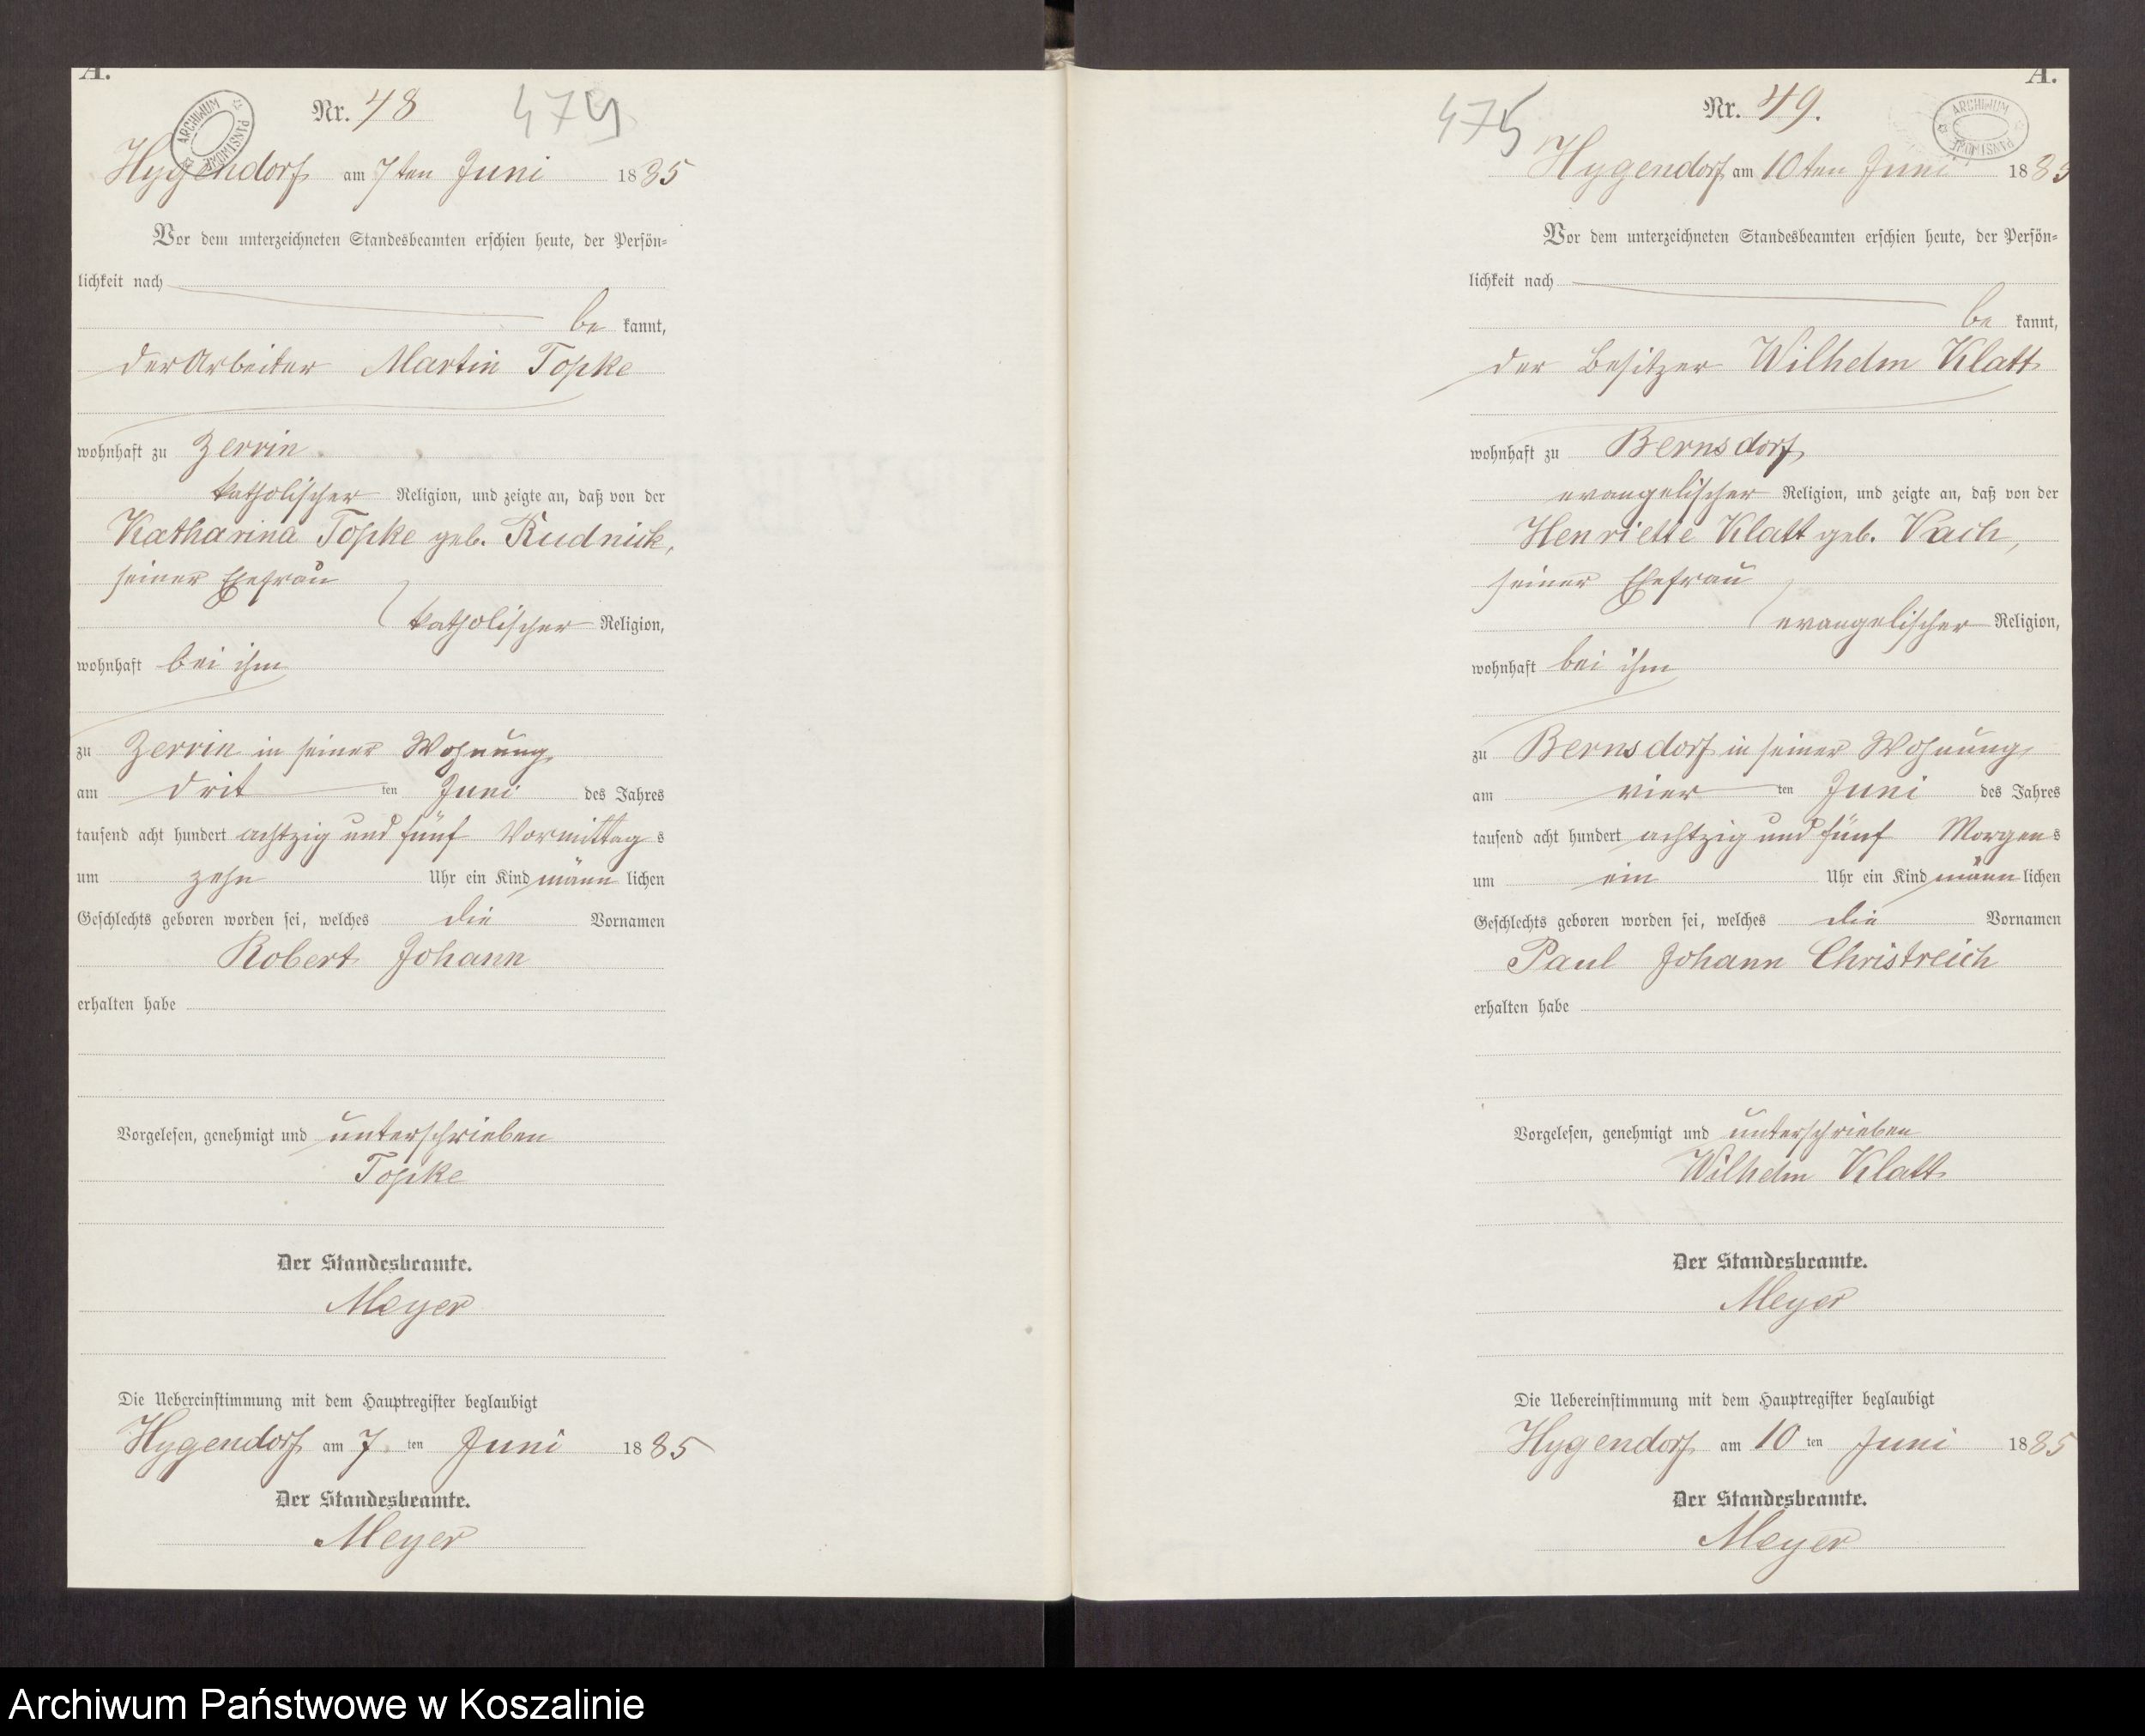 A.
Nr. 48
474
ARCHIWUM PAŃSTWOWE
Hygendorf am 7ten Juni 1885
Vor dem unterzeichneten Standesbeamten erschien heute, der Persön-
lichkeit nach
be kannt,
der Arbeiter Martin Topke
wohnhaft zu Zerrin
katholischer Religion, und zeigte an, daß von der
Katharina Topke geb. Rudnick,
seiner Ehefrau
katholischer Religion,
wohnhaft bei ihm
zu Zerrin in seiner Wohnung
am drit ten Juni des Jahres
tausend acht hundert achtzig und fünf Vormittag s
um zehn Uhr ein Kind männ lichen
Geschlechts geboren worden sei, welches die Vornamen
Robert Johann
erhalten habe
Vorgelesen, genehmigt und unterschrieben
Topke
Der Standesbeamte.
Meyer
Die Uebereinstimmung mit dem Hauptregister beglaubigt
Hygendorf am 7. ten Juni 1885
Der Standesbeamte.
Meyer
A.
475
Nr. 49.
ARCHIWUM PAŃSTWOWE
Hygendorf am 10ten Juni 1885
Vor dem unterzeichneten Standesbeamten erschien heute, der Persön-
lichkeit nach
be kannt,
der Besitzer Wilhelm Klatt
wohnhaft zu Bernsdorf
evangelischer Religion, und zeigte an, daß von der
Henriette Klatt geb. Vach,
seiner Ehefrau
evangelischer Religion,
wohnhaft bei ihm
zu Bernsdorf in seiner Wohnung
am vier ten Juni des Jahres
tausend acht hundert achtzig und fünf Morgen s
um ein Uhr ein Kind männ lichen
Geschlechts geboren worden sei, welches die Vornamen
Paul Johann Christreich
erhalten habe
Vorgelesen, genehmigt und unterschrieben
Wilhelm Klatt
Der Standesbeamte.
Meyer
Die Uebereinstimmung mit dem Hauptregister beglaubigt
Hygendorf am 10 ten Juni 1885
Der Standesbeamte.
Meyer
Archiwum Państwowe w Koszalinie